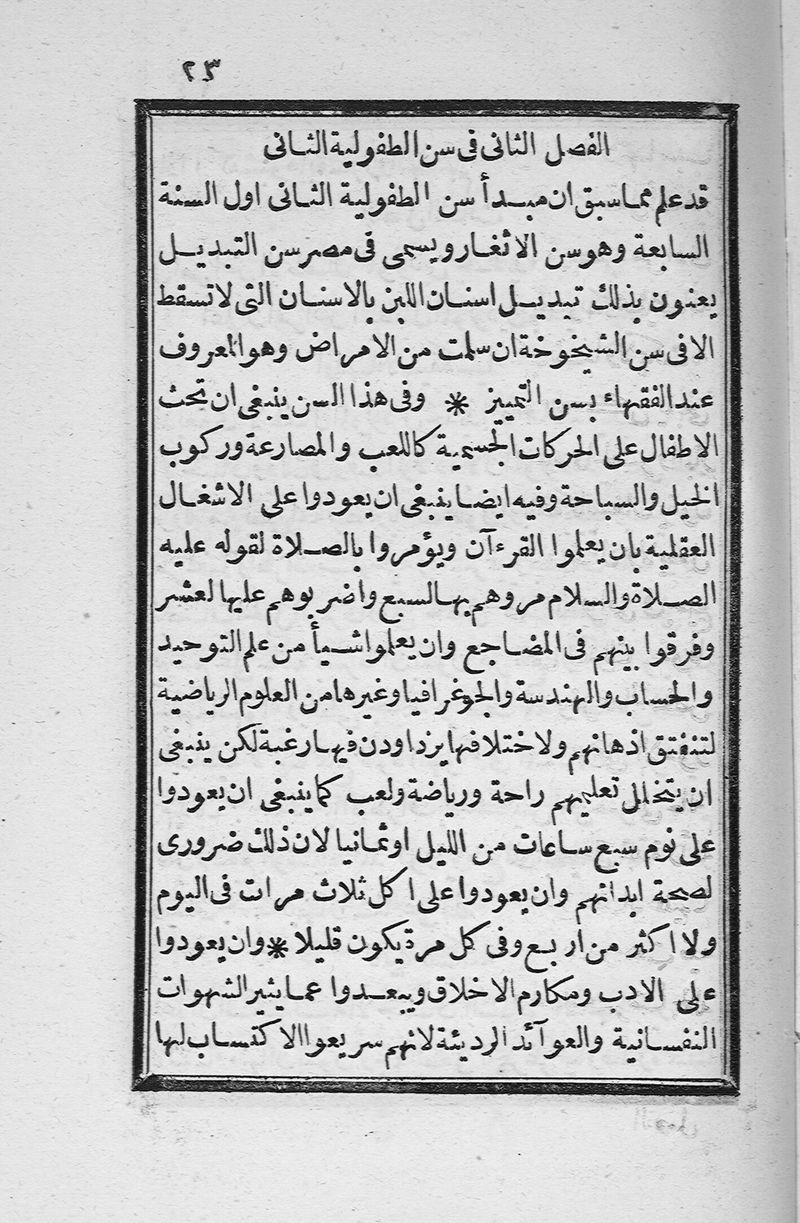 ٢٣
الفصل الثانى فى سن الطفولية الثانى
قد علم مما سبق ان مبدأ سن الطفولية الثانى اول السنة
السابعة وهو سن الاثغار ويسمى فى مصر سن التبديل
يعنون بذلك تبديل اسنان اللبن بالاسنان التى لا تسقط
الا فى سن الشيخوخة ان سلمت من الامراض وهو المعروف
عند الفقهاء بسن التمييز * وفى هذا السن ينبغى ان تحث
الاطفال على الحركات الجسمية كاللعب والمصارعة وركوب
الخيل والسباحة وفيه ايضا ينبغى ان يعودوا على الاشغال
العقلية بان يعلموا القرءآن ويؤمروا بالصلاة لقوله عليه
الصلاة والسلام مروهم بها لسبع واضربوهم عليها لعشر
وفرقوا بينهم فى المضاجع وان يعلموا شيأ من علم التوحيد
والحساب والهندسة والجوغرافيا وغيرها من العلوم الرياضية
لتنفتق اذهانهم ولاختلافها يزدادون فيها رغبة لكن ينبغى
ان يتخلل تعليمهم راحة ورياضة ولعب كما ينبغى ان يعودوا
على نوم سبع ساعات من الليل او ثمانيا لان ذلك ضرورى
لصحة ابدانهم وان يعودوا على اكل ثلاث مرات فى اليوم
ولا اكثر من اربع وفى كل مرة يكون قليلا * وان يعودوا
على الادب ومكارم الاخلاق ويبعدوا عما يثير الشهوات
النفسانية والعوآئد الرديئة لانهم سريعوا الاكتساب لها